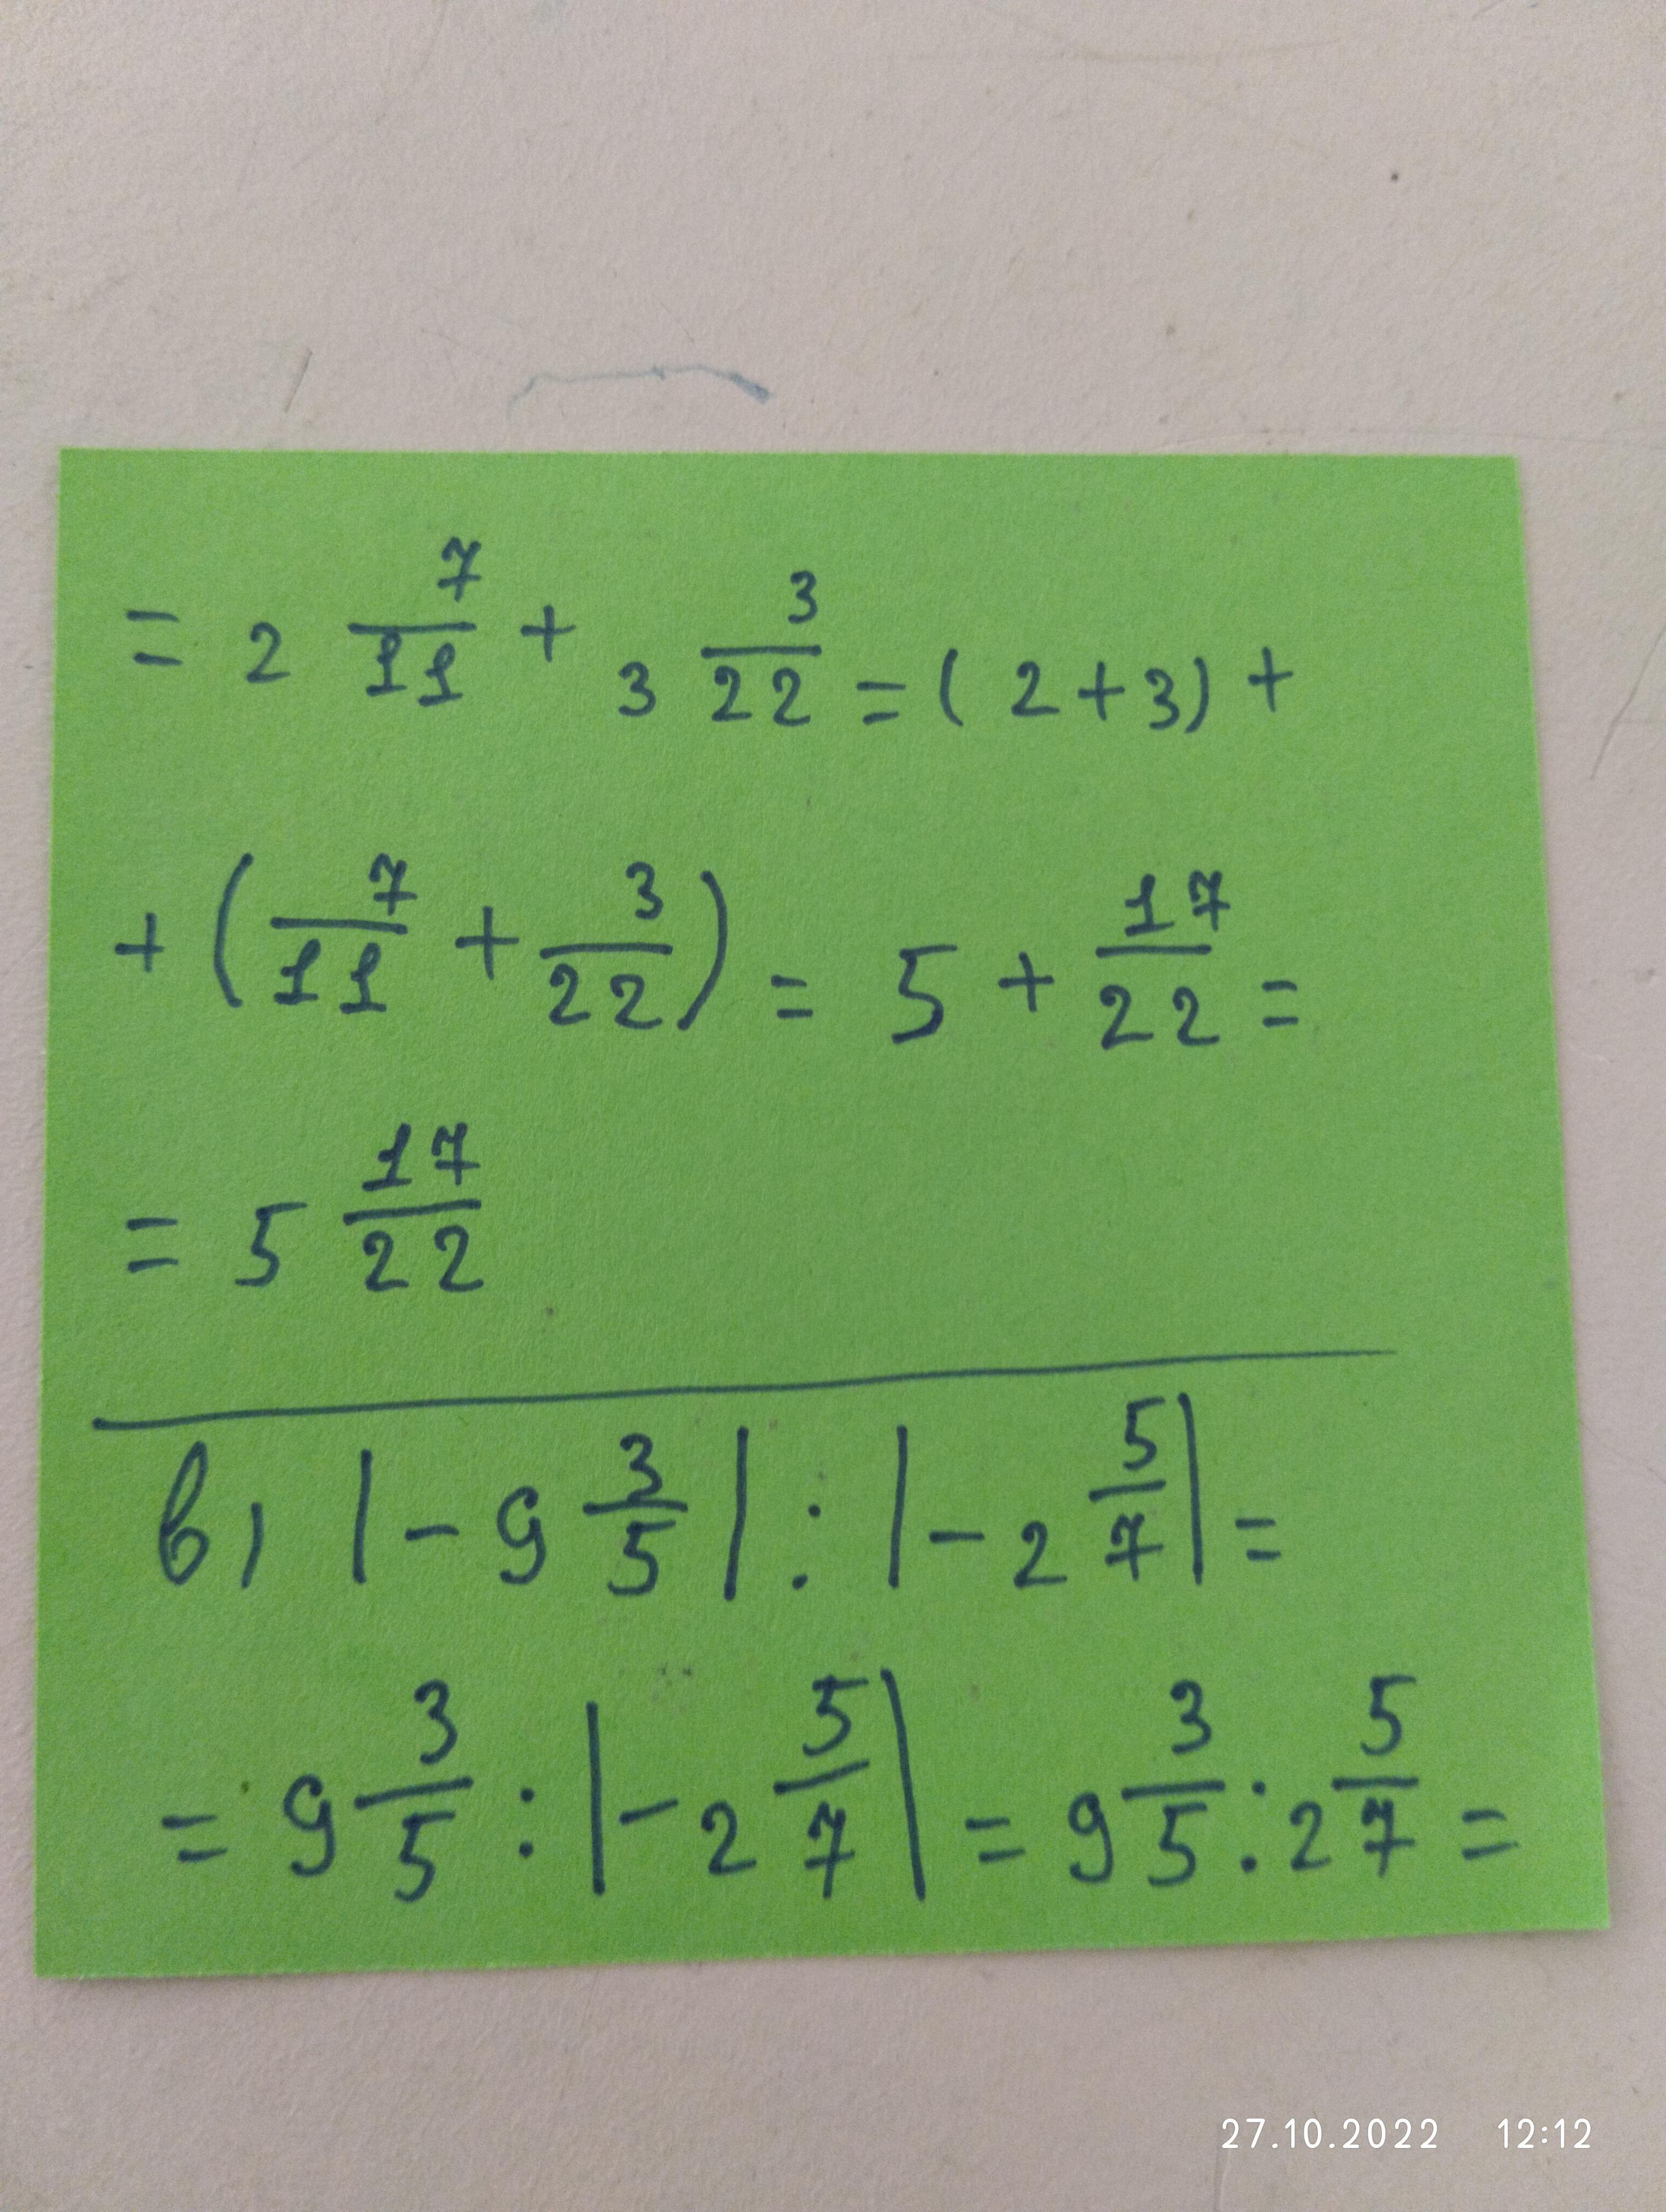 = 2 7/11 + 3 3/22 = (2+3) +
+ (7/11 + 3/22) = 5 + 17/22 =
= 5 17/22
в) |-9 3/5| : |-2 5/7| =
= 9 3/5 : |-2 5/7| = 9 3/5 : 2 5/7 =
27.10.2022 12:12